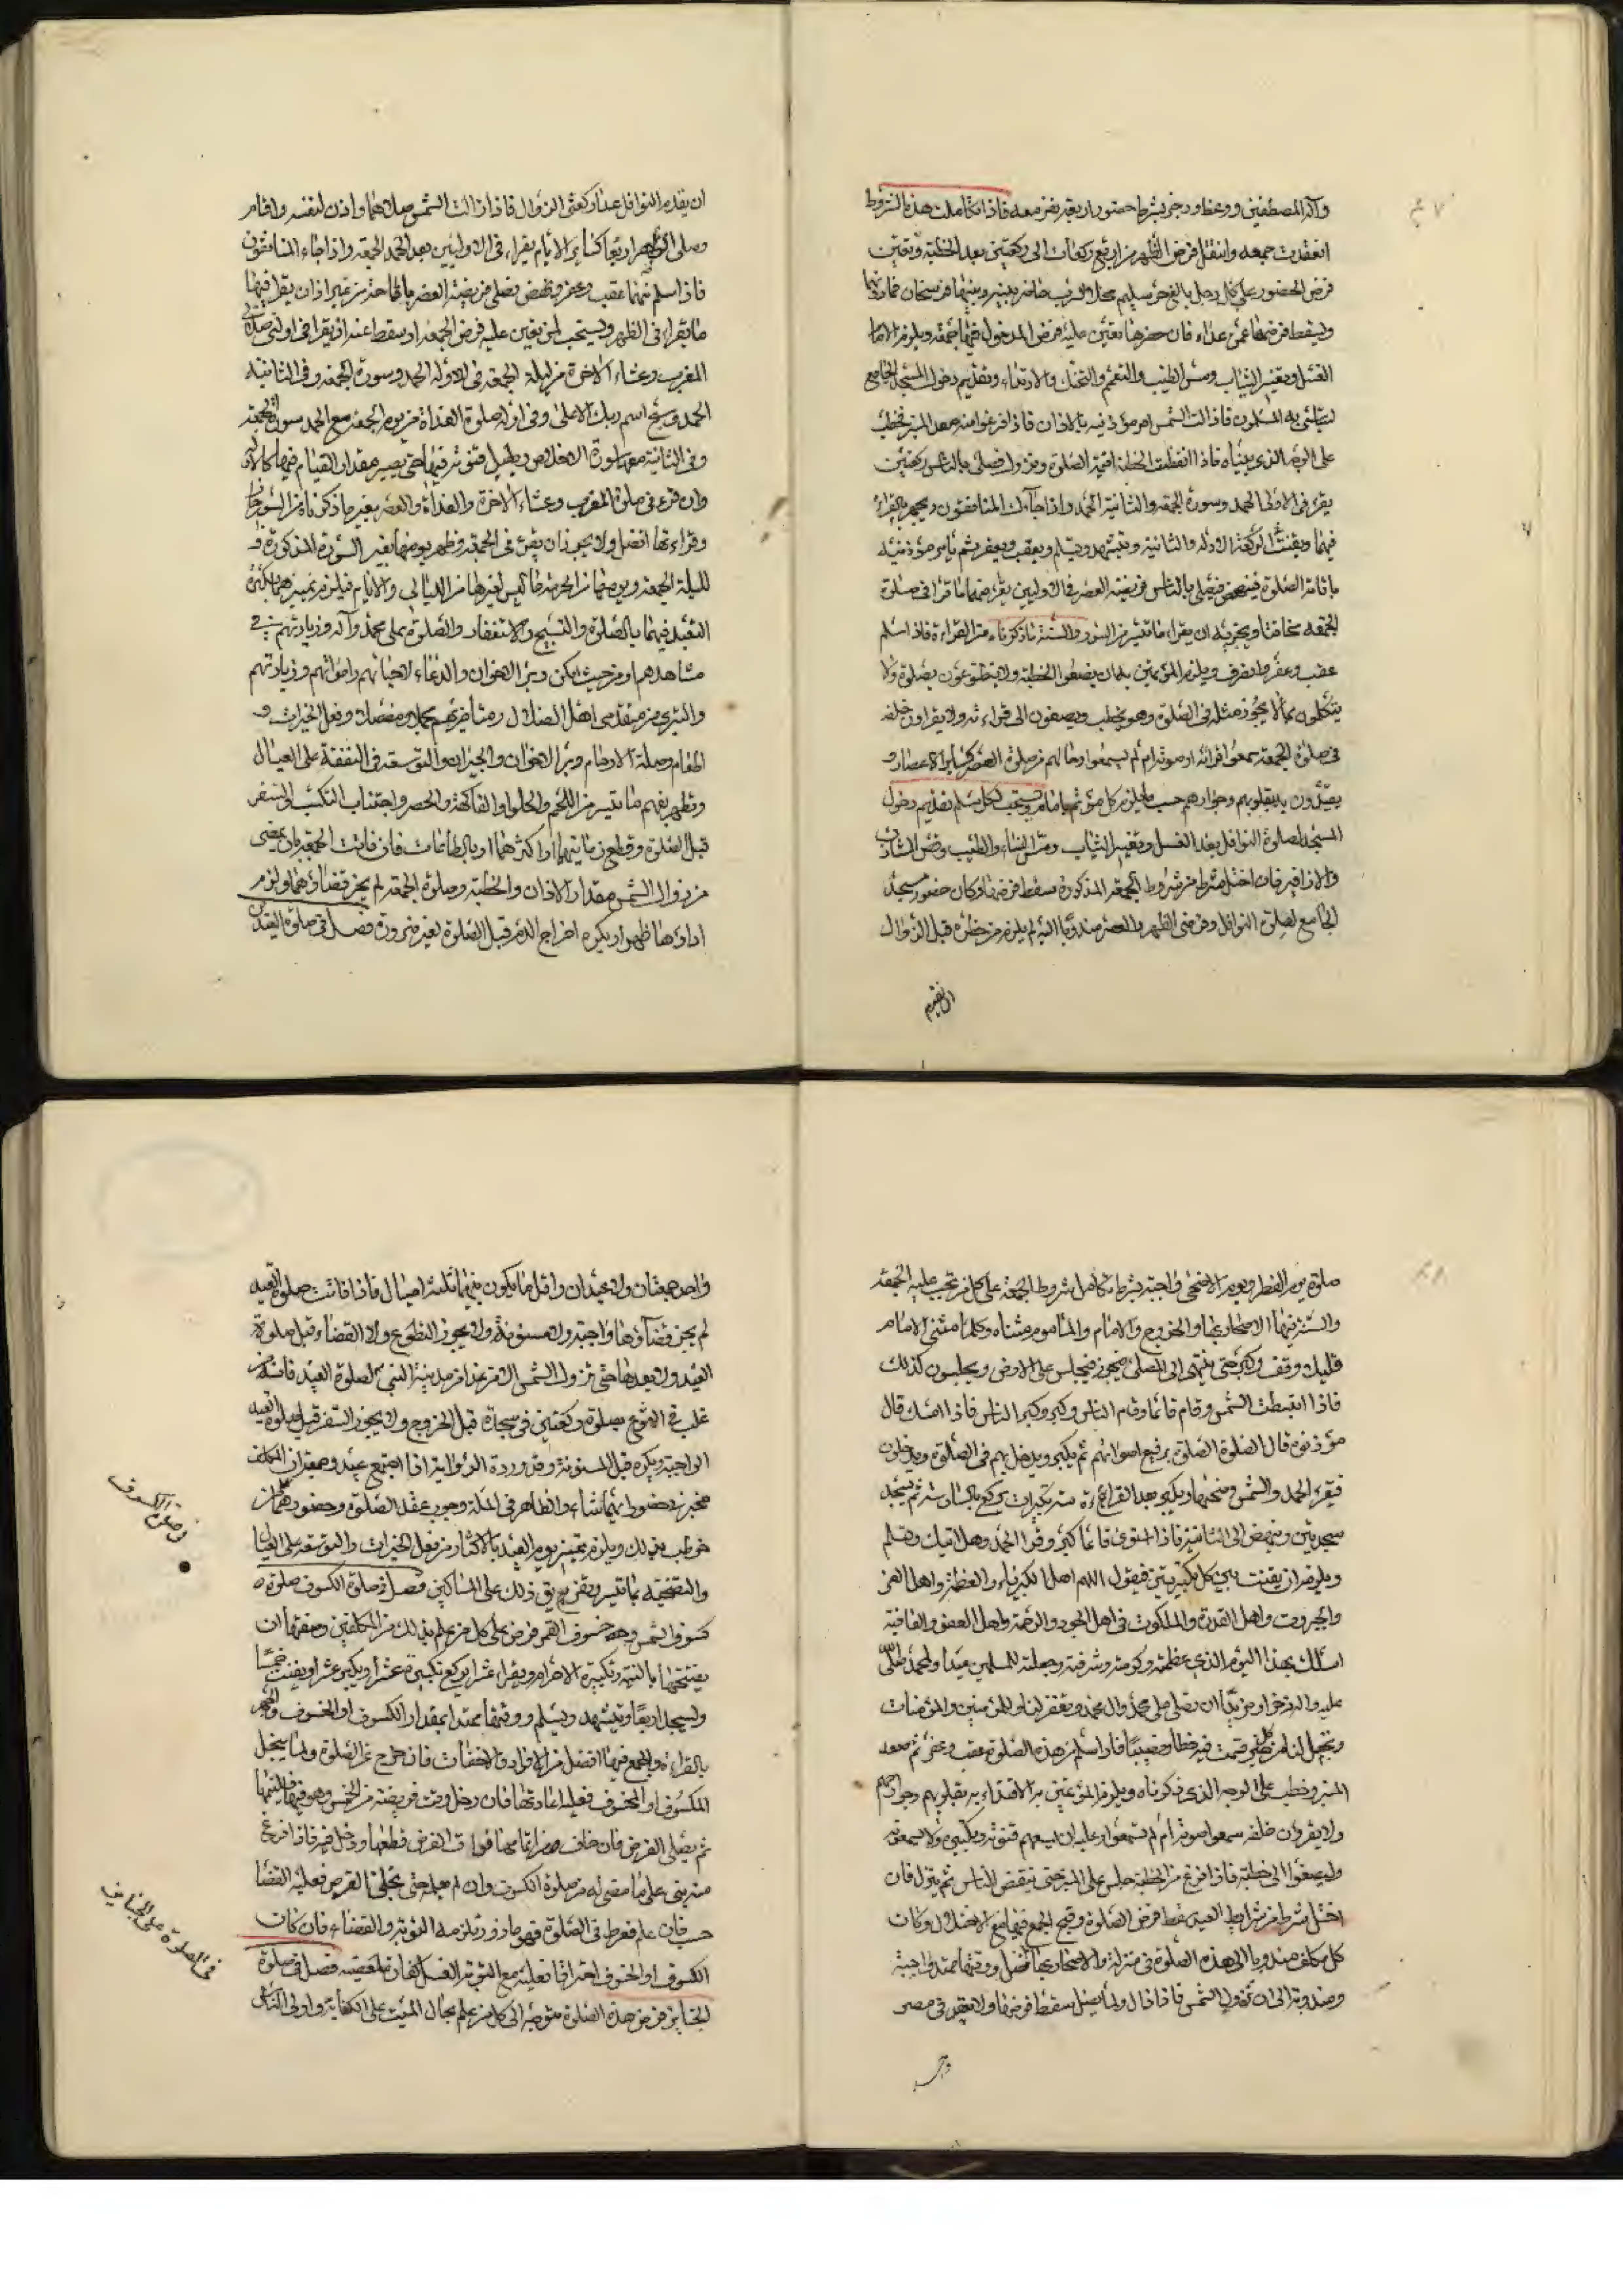 وآله المصطفين ووعظ وزجر بشرط حضور اربعة نفر معه فاذا تكاملت هذه الشروط
انعقدت جمعه وانتقل فرض الظهر من اربع ركعات الى ركعتين بعد الخطبة وتعين
فرض الحضور على كل رجل بالغ حر سليم مخلى السرب حاضر بينه وبينها فرسخان فما دونهما
ويسقط فرضها عمن عداه فان حضرها تعين عليه فرض الدخول فيها جمعه ويلزم الامام
الغسل وتغيير الثياب ومس الطيب والتعمم والتحنك والارتداء وتقديم دخول المسجد الجامع
ليتاسى به المسلمون فاذا زالت الشمس امر مؤذنيه بالاذان فاذا فرغوا منه صعد المنبر فخطب
على الوجه الذي بيناه فاذا انقضت الخطبة اقيمت الصلوة ونزل فصلى بالناس ركعتين
يقرء فى الاولى الحمد وسورة الجمعه والثانية الحمد واذا جاءك المنافقون ويجهر بالقراءة
فيهما ويقنت فى الركعة الاوله والثانية ويتشهد ويسلم ويعقب ويعفر ثم يأمر مؤذنيه
باقامة الصلوة فينهض فيصلى بالناس فريضة العصر فى الاوليين يقرء فيهما ما قرأ فى صلوة
الجمعه مخافتا ويجزيه ان يقرء ما تيسر من السور والسنة ما ذكرناه من القراءة فاذا سلم
عقب وعفر وانصرف ويلزم المؤتمين به ان يصغوا الخطبة ولا يتطوعون بصلوة ولا
يتكلمون بما لا يجوز مثله فى الصلوة وهو يخطب ويصغون الى قراءته ولا يقراون خلفه
فى صلوة الجمعه سمعوا قرائته او صوته ام لم يسمعوا وحالهم فى صلوة العصر كساير الاعصار و
يقتدون به بقلوبهم وجوارحهم حسب ما يلزم كل مؤتم بامام ويستحب لكل مسلم تقديم دخول
المسجد لصلوة النوافل بعد الغسل وتغيير الثياب ومس النساء والطيب وقص الشارب
والاظافير فان اختل شرط من شروط الجمعه المذكورة سقط فرضها وكان حضور مسجد
الجامع لصلوة النوافل وفرضى الظهر والعصر مندوبا اليه لم يلزم من حضره قبل الزوال
ان تقديم
ان يقدم النوافل عدا ركعتى الزوال فاذا زالت الشمس صلاهما واذن لنفسه واقام
وصلى الظهر اربعا كسائر الايام يقراء فى الاوليين بعد الحمد الجمعه واذا جاءك المنافقون
فاذا سلم منها عقب وعفر ونهض فصلى فريضة العصر باقامة من غير اذان يقراء فيها
ما يقراء فى الظهر ويستحب لمن تعين عليه فرض الجمعه او سقط عنه ان يقرا فى اولى صلاتى
المغرب وعشاء الاخرة من ليلة الجمعه فى الاوله الحمد وسورة الجمعه وفى الثانية
الحمد وسبح اسم ربك الاعلى وفى اوله صلوة الغداة من يوم الجمعه مع الحمد سورة الجمعة
وفى الثانية معه سورة الاخلاص ويطيل قنوته فيها حتى يصير مقدار القيام فيها كالاولى
وان قرء فى صلوة المغرب وعشاء الاخرة والغداة والعصر بغير ما ذكرناه من السور جاز
وقراءتها افضل ولا يجوز ان يقرء فى الجمعه وظهر يومها بغير السورة المذكورة و
لليلة الجمعه ويومها من الحرمة ما ليس لغيرها من الليالى والايام فيلزم تمييزهما بكثرة
التعبد فيهما بالصلوة والتسبيح والاستغفار والصلوة على محمد وآله وزيارتهم فى
مشاهدهم او من حيث امكن وبر الاخوان والدعاء لاحيائهم وامواتهم وزيارتهم
والتبرى من متقدمى اهل الضلال ومتأخريهم مجملا ومفصلا وفعل الخيرات و
اطعام وصلة الارحام وبر الاخوان والجيران والتوسعه فى النفقة على العيال
وتطريفهم ما تيسر من اللحم والحلوا والفاكهة والخضر واجتناب التكسب والسفر
قبل الصلوة وقطع زمانيهما او اكثرهما بالطاعات فان فاتت الجمعه بان يمضى
من زوال الشمس مقدار الاذان والخطبة وصلوة الجمعه لم يجز قضاؤها ولزم
اداؤها ظهرا ويكره اخراج الدم قبل الصلوة لغير ضرورة فصل فى صلوة العيدين
صلوة يوم الفطر ويوم الاضحى واجبة بشرط تكامل شروط الجمعة على كل من تجب عليه الجمعة
والسنة فيها الاصحار بها والخروج والامام والماموم مشاة وكلما مشى الامام
قليلا وقف وكبر حتى ينتهى الى المصلى فيجلس على الارض ويجلسون كذلك
فاذا انبسطت الشمس قام قائما وقام الناس وكبر وكبر الناس فاذا امسك قال
مؤذنوه قال الصلوة الصلوة برفيع اصواتهم ثم يكبر ويدخل بهم فى الصلوة ويدخلون
فيقرء الحمد والشمس وضحيها ويكبر بعد القراءة ست تكبيرات يركع بالسادسة ثم يسجد
سجدتين وينهض الى الثانية فاذا استوى قائما كبر وقرأ الحمد وهل اتيك
ويلزمه ان يقنت بين كل تكبيرتين فيقول اللهم اهل الكبرياء والعظمة واهل العز
والجبروت واهل القدرة والملكوت واهل الجود والرحمة واهل العفو والعافية
اسئلك بهذا اليوم الذى عظمته وكرمته وشرفته وجعلته للمسلمين عيدا ولمحمد صلى الله
عليه واله ذخرا ومزيدا ان تصلى على محمد وال محمد وتغفر لنا وللمؤمنين والمؤمنات
وتجعل لنا من كل خير قسمت فيه حظا ونصيبا فاذا سلم من هذه الصلوة عقب وعفر ثم صعد
المنبر وخطب على الوجه الذى ذكرناه ويلزم المؤتمين به الاقتداء به بقلوبهم وجوارحهم
ولا يقرون خلفه سمعوا صوته ام لم يسمعوا وعليه ان يسمعهم قنوته وتكبيره ولا يسمعونه
وليصغوا الى خطبته فاذا فرغ من الخطبة جلس على المنبر حتى ينفض الناس ثم ينزل فان
اختل شرط من شرايط العيد سقط فرض الصلوة وقبح الجمع فيها مع الاختلال وكان
كل مكلف مندوبا الى هذه الصلوة فى منزله والاصحار بها افضل ووقتها ممتد واجبة
ومندوبة الى ان تزول الشمس فاذا زال ولما يصل سقط فرضها ولا تنعقد فى مصر
واحد
واحد جمعتان ولا عيدان واقل ما يكون بينهما ثلثة اميال فاذا فاتت صلوة العيد
لم يجز قضاؤها واجبة ولا مسنونة ولا يجوز التطوع ولا القضاء قبل صلوة
العيد ولا بعدها حتى تزول الشمس الا من غدا من مدينة النبى لصلوة العيد فانه
رغب فى الرجوع بصلوة ركعتين فى مسجده قبل الخروج ولا يجوز السفر قبل صلوة العيد
الواجبة ويكره قبل المسنونة وقد وردة الرواية اذا اجتمع عيد وجمعة ان المكلف
مخير فى حضور ايهما شاء والظاهر فى المله وجوب عقد الصلوة وحضورهما من
خوطب بذلك ويلزم تمييز يوم العيد بالاكثار من فعل الخيرات والتوسعه على العيال
والتضحيه بما تيسر وتفريق ذلك على المساكين فصل فى صلوة الكسوف صلوة
كسوف الشمس وخسوف القمر فرض على كل من علم بذلك من المكلفين وصفتها ان
يفتتحها بالنية وتكبيرة الاحرام ويقراء عشرا ويركع بتكبيرة عشرا ويكبر عشرا ويقنت خمسا
ويسجد اربعا ويتشهد ويسلم ووقتها ممتد بمقدار الكسوف او الخسوف والجهر
بالقراءة والجمع فيها افضل من الافراد والاخفات فان خرج عن الصلوة ولما ينجل
المكسوف او المخسوف فعليه اعادتها فان دخل وقت فريضة من الخمس وهو فيها فليتمها
ثم يصلى الفرض فان خاف من اتمامها فوات الفرض قطعها ودخل فيه فاذا فرغ
منه بنى على ما مضى له من صلوة الكسوف وان لم يصل حتى تجلى القرص فعليه القضا
حسب فان علم ففرط فى الصلوة فهو مازور تلزمه التوبة والقضاء فان كان
الكسوف او الخسوف احتراقا فعليه مع التوبة الغسل كفارة لمعصيته فصل فى صلوة
الجنايز فرض هذه الصلوة متوجه الى كل من علم بحال الميت على الكفاية واولى الناس
فى صلوة الكسوف
فى الصلوة على الجنايز